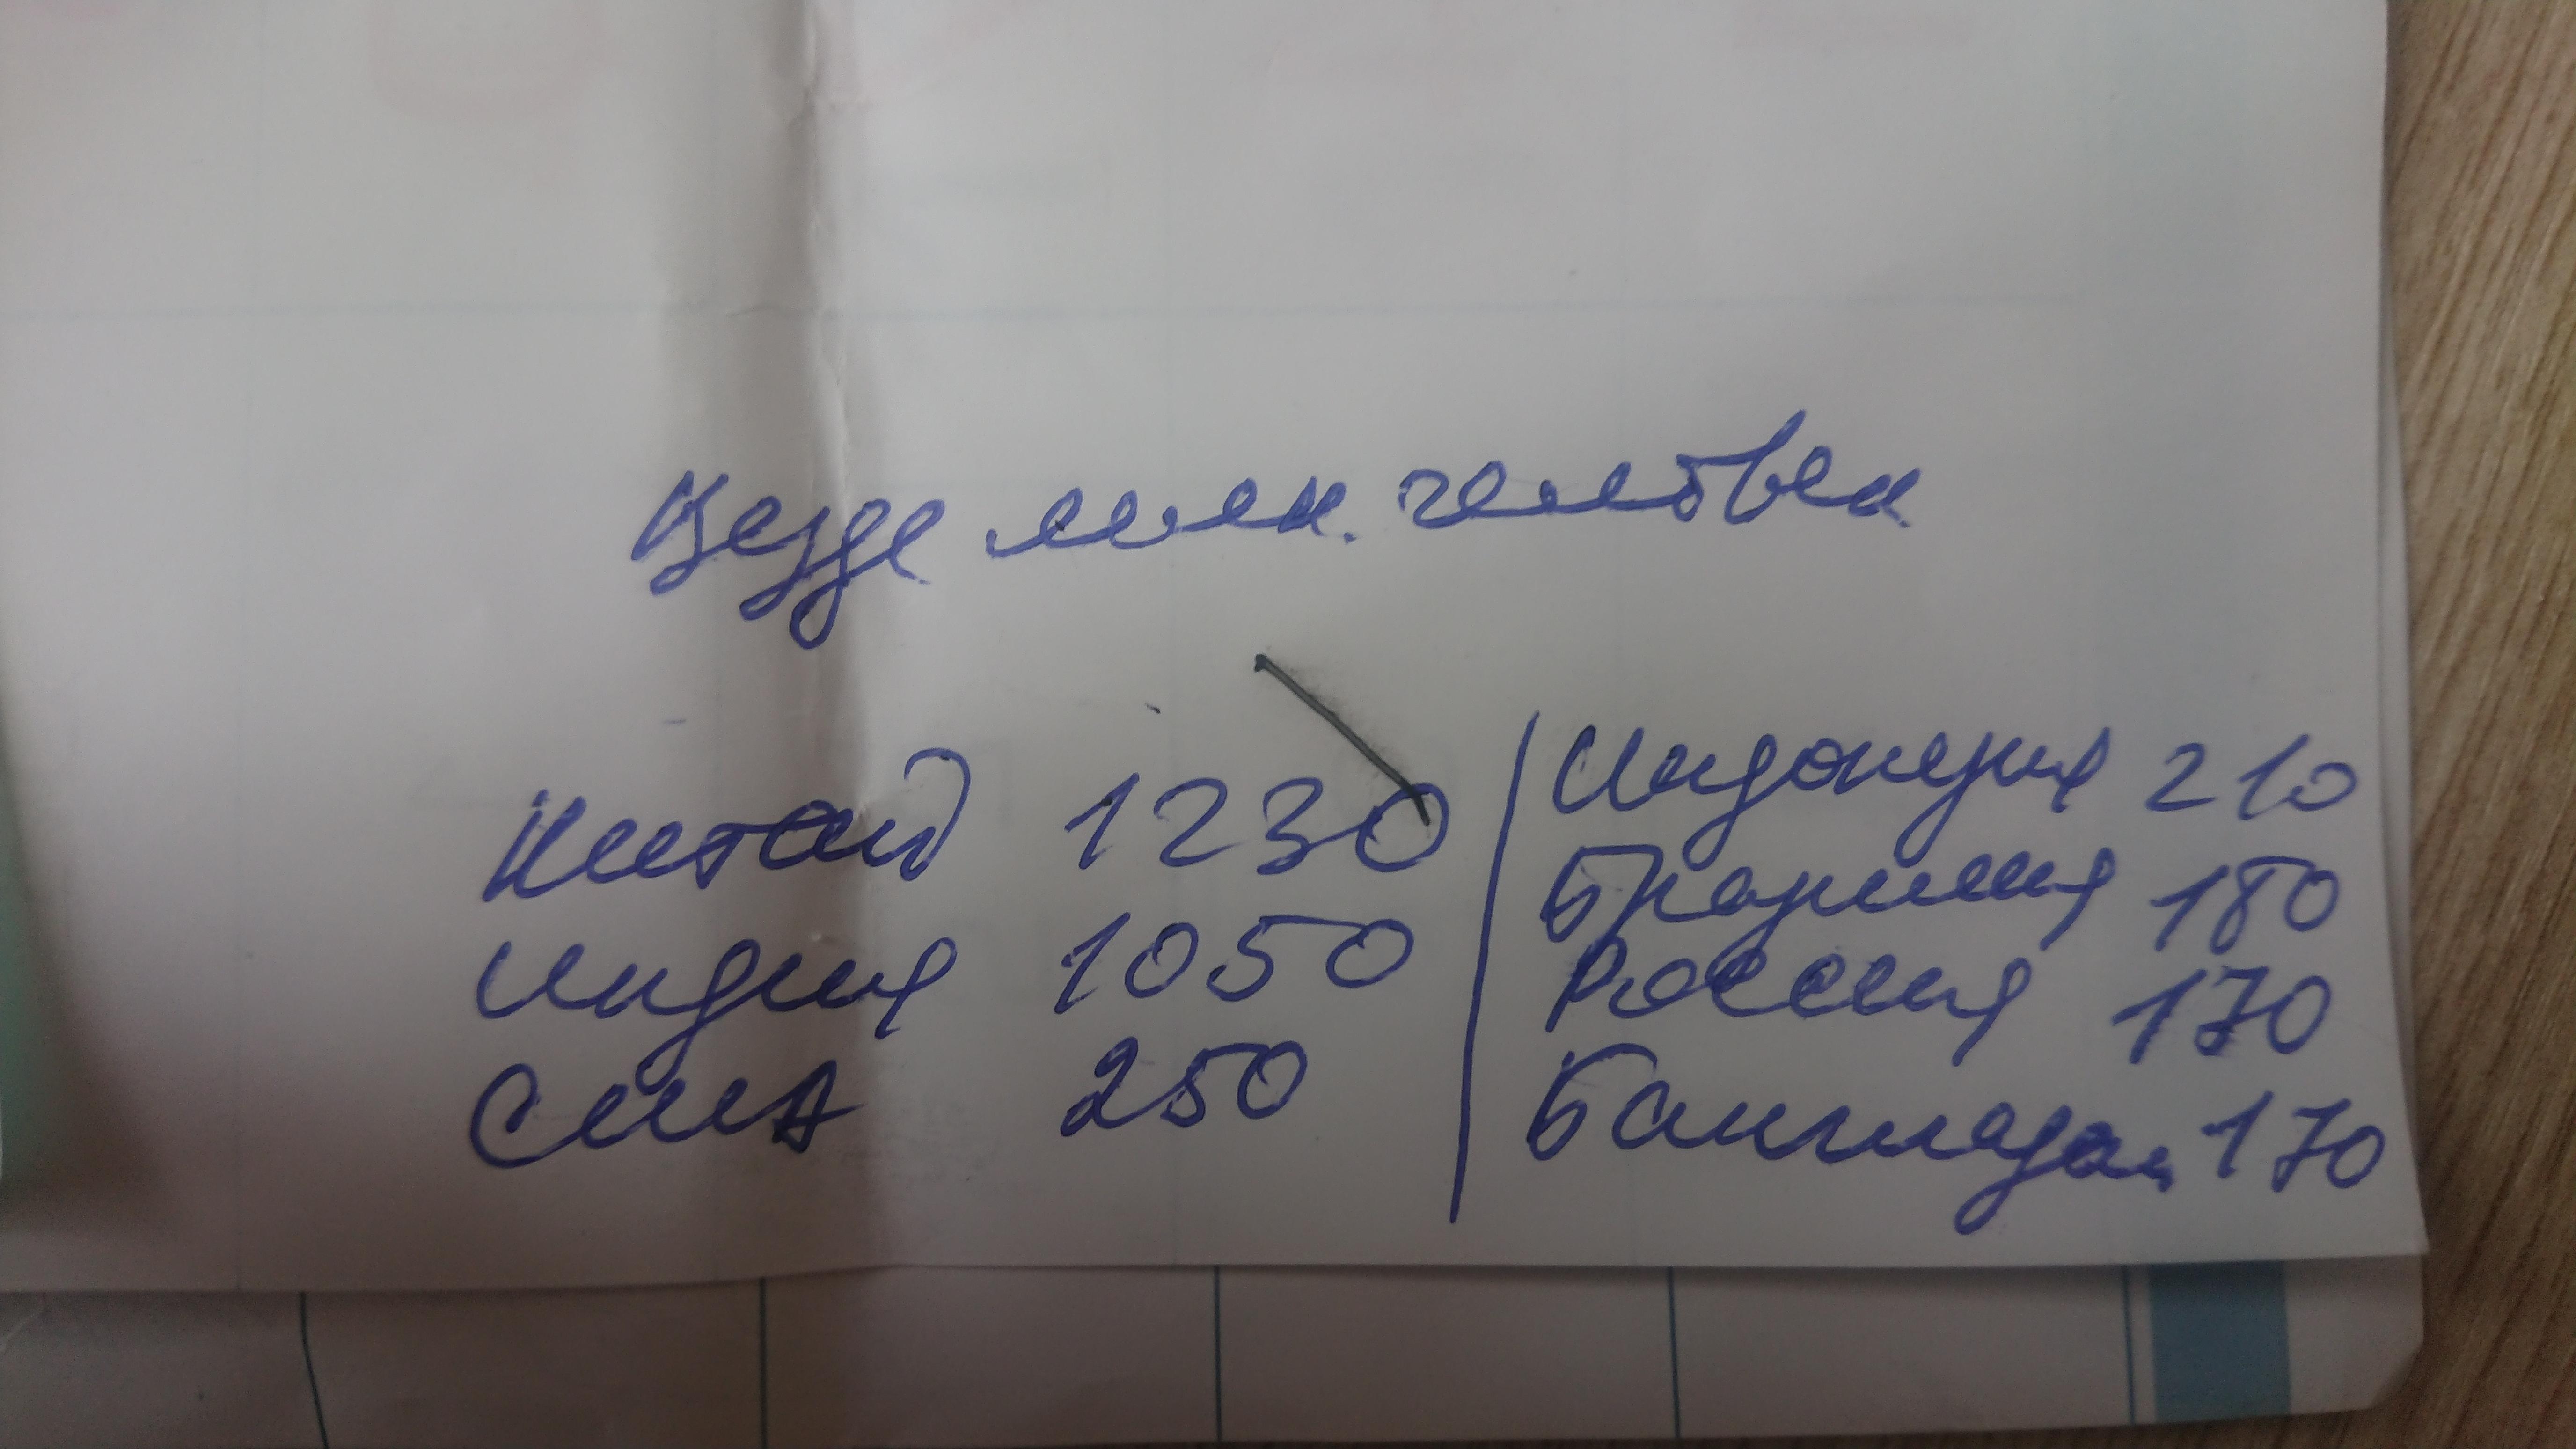 Везде млн. человек
Китай 1230
Индия 1050
США 250
Индонезия 210
Бразилия 180
Россия 170
Бангладеш 170